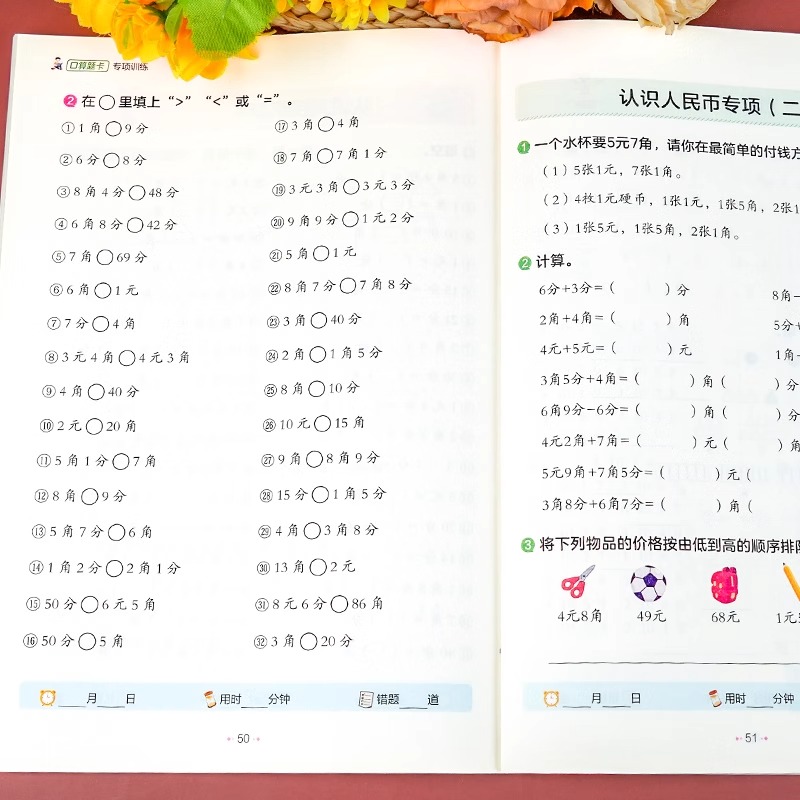 口算题卡 专项训练
2 在○里填上“>”“<”或“=”。
①1角○9分
②6分○8分
③8角4分○48分
④6角8分○42分
⑤7角○69分
⑥6角○1元
⑦7分○4角
⑧3元4角○4元3角
⑨4角○40分
⑩2元○20角
⑪5角1分○7角
⑫8角○9分
⑬5角7分○6角
⑭1角2分○2角1分
⑮50分○6元5角
⑯50分○5角
⑰3角○4角
⑱7角○7角1分
⑲3元3角○3元3分
⑳9角9分○1元2分
㉑5角○1元
㉒8角7分○7角8分
㉓3角○40分
㉔2角○1角5分
㉕8角○10分
㉖10元○15角
㉗9角○8角9分
㉘15分○1角5分
㉙4角○3角8分
㉚13角○2元
㉛8元6分○86角
㉜3角○20分
____月____日 用时____分钟 错题____道
50
认识人民币专项(二
1 一个水杯要5元7角,请你在最简单的付钱方
(1)5张1元,7张1角。
(2)4枚1元硬币,1张1元,1张5角,2张1
(3)1张5元,1张5角,2张1角。
2 计算。
6分+3分=( )分 8角-
2角+4角=( )角 5分+
4元+5元=( )元 1角-
3角5分+4角=( )角( )分
6角9分-6分=( )角( )分
4元2角+7角=( )元( )角
5元9角+7角5分=( )元(
3角8分+6角7分=( )角(
3 将下列物品的价格按由低到高的顺序排
4元8角 49元 68元 1元5
____月____日 用时____分钟
51